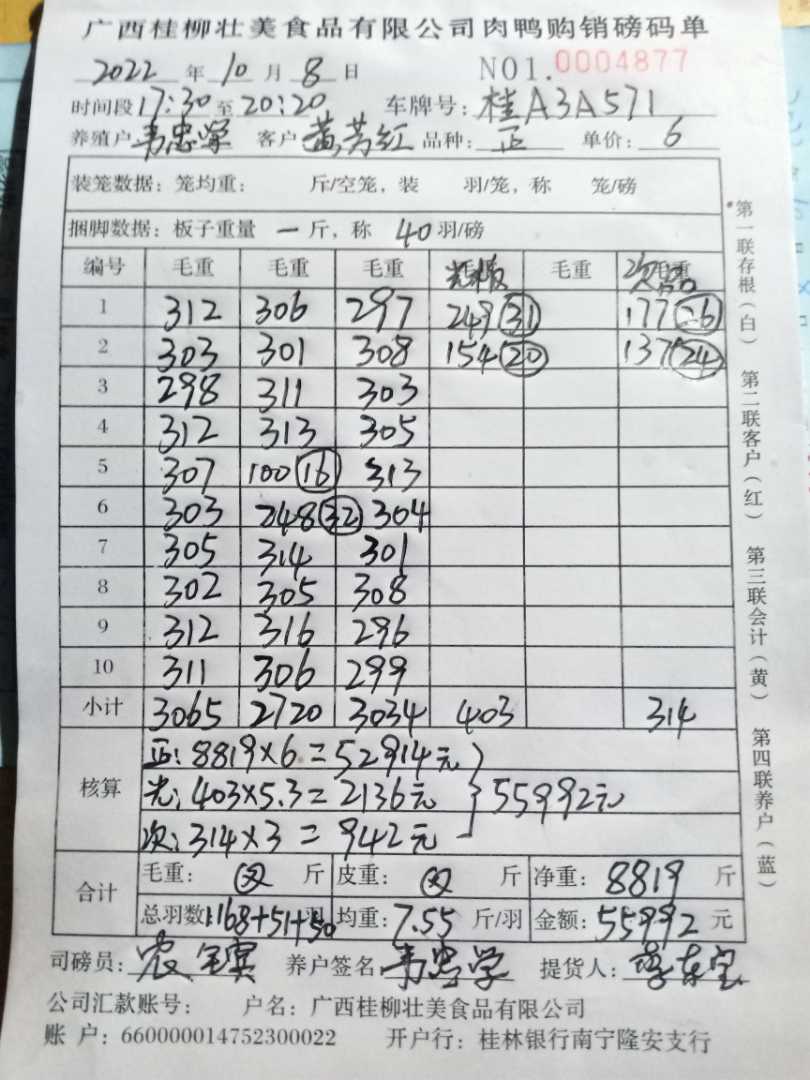 广西桂柳壮美食品有限公司肉鸭购销磅码单
2022 年 10 月 8 日 NO1.0004877
时间段 17:30 至 20:20 车牌号: 桂A3A571
养殖户 韦忠学 客户 黄芳红 品种: 正 单价: 6
装笼数据: 笼均重: 斤/空笼, 装 羽/笼, 称 笼/磅
捆脚数据: 板子重量 一 斤, 称 40 羽/磅
编号 毛重 毛重 毛重 毛重 毛重
1 312 306 297 249 31 177 26
2 303 301 308 154 20 137 24
3 298 311 303
4 312 313 305
5 307 100 16 313
6 303 248 32 304
7 305 314 301
8 302 305 308
9 312 316 296
10 311 306 299
小计 3065 2720 3034 403 314
核算 正: 8819×6=52914元
光: 403×5.3=2136元 } 55992元
次: 314×3=942元
合计 毛重: 斤 皮重: 斤 净重: 8819 斤
总羽数 1168+51+50 羽 均重: 7.55 斤/羽 金额: 55992 元
司磅员: 养户签名: 韦忠学 提货人:
公司汇款账号: 户名: 广西桂柳壮美食品有限公司
账 户: 660000014752300022 开户行: 桂林银行南宁隆安支行
第一联存根(白) 第二联客户(红) 第三联会计(黄) 第四联养户(蓝)